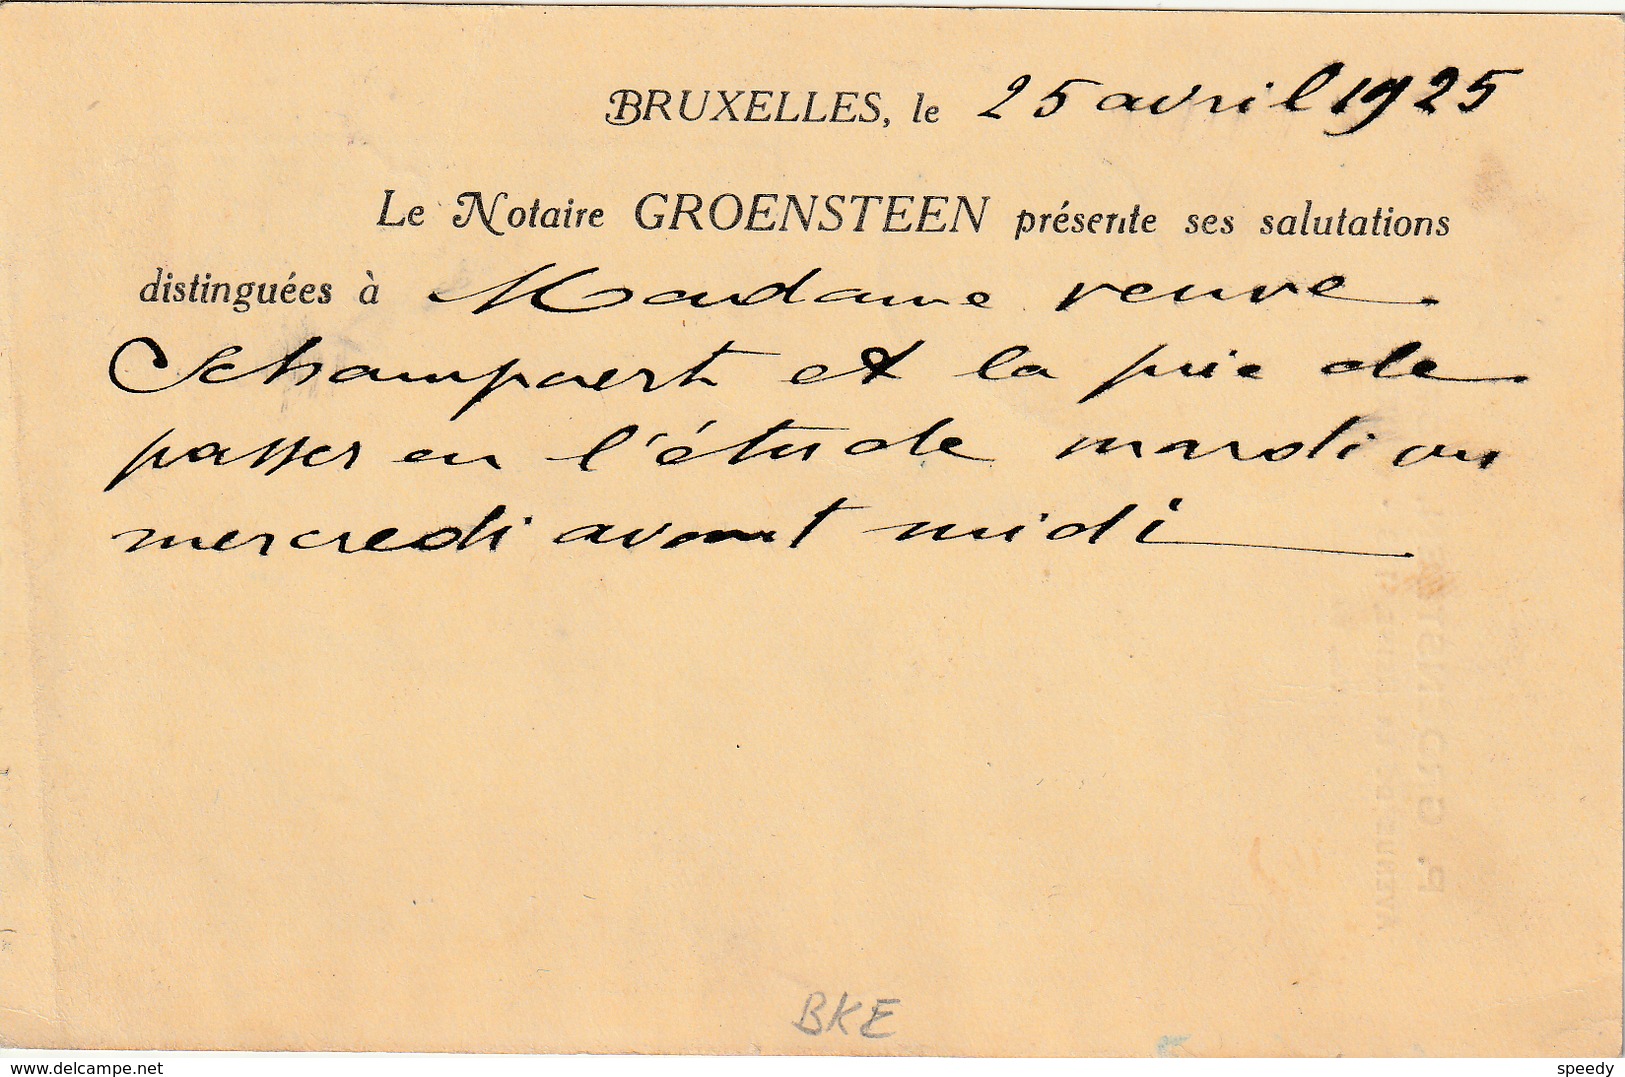 BRUXELLES, le 25 avril 1925
Le Notaire GROENSTEEN présente ses salutations
distinguées à Madame veuve
Schampaert et la prie de
passer en l'étude mardi ou
mercredi avant midi
BKE
P. GROENSTEEN
delcampe.net
speedy